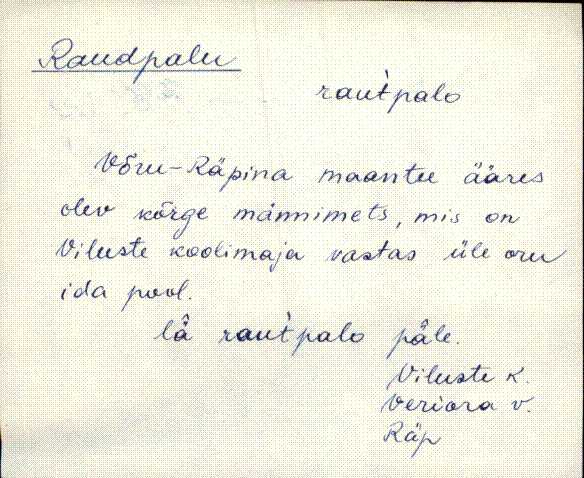 Raudpalu
raut̀palo
Võru-Räpina maantee ääres
olev kõrge männimets, mis on
Viluste koolimaja vastas üle oru
ida pool.
lǟ raut̀palo pǟle.
Viluste k.
Veriora v.
Räp